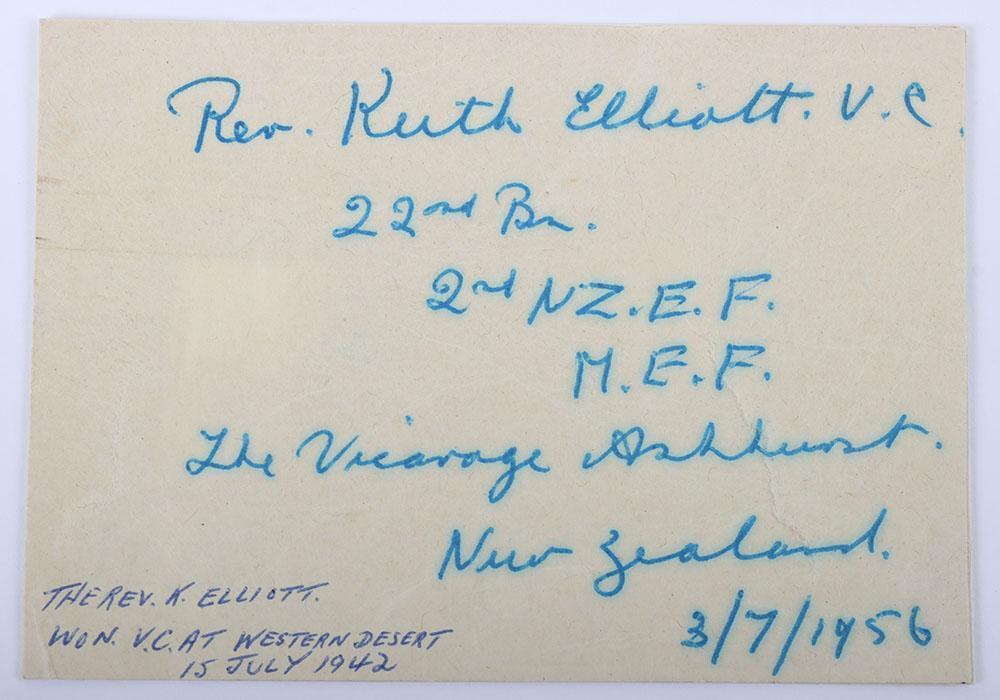 Rev. Keith Elliott. V.C.
22nd Bn.
2nd NZ.E.F.
M.E.F.
The Vicarage Ashhurst.
New Zealand.
3/7/1956
THE REV. K. ELLIOTT.
WON. V.C. AT WESTERN DESERT
15 JULY 1942